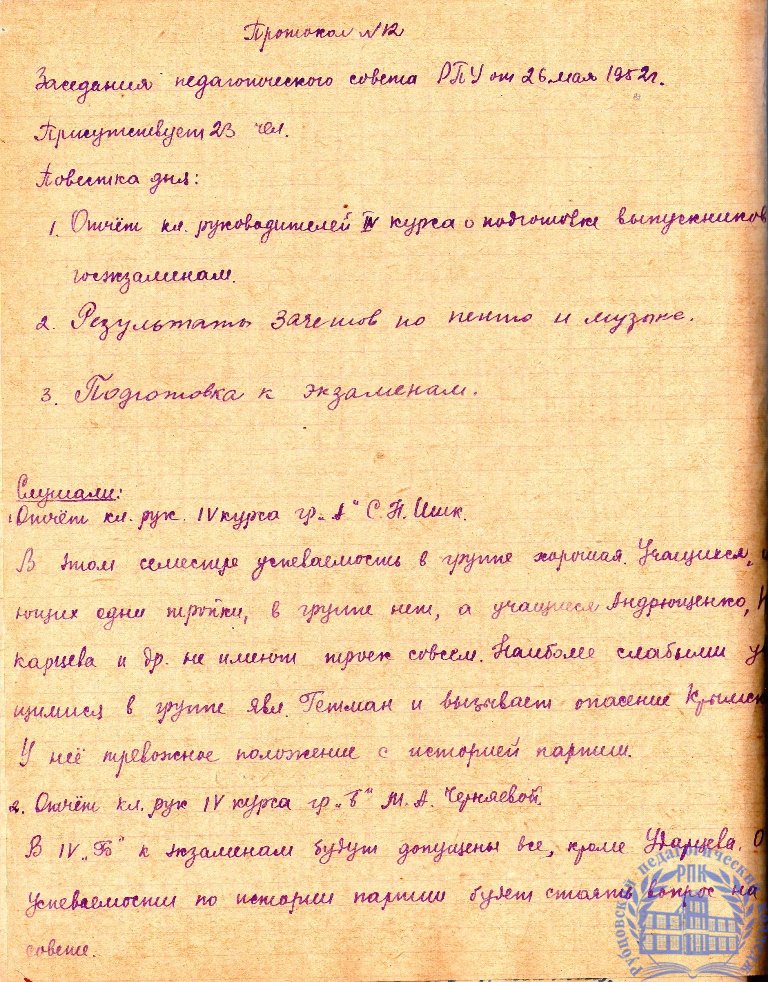 Протокол №12
Заседания педагогического совета РПУ от 26 мая 1952г.
Присутствует 23 чел.
Повестка дня:
1. Отчёт кл. руководителей IV курса о подготовке выпускников
госэкзаменам.
2. Результаты зачетов по пению и музыке.
3. Подготовка к экзаменам.
Слушали:
1. Отчёт кл. рук. IV курса гр. „А" С.Н. Ишк.
В этом семестре успеваемость в группе хорошая. Учащихся,
ющих одни тройки, в группе нет, а учащиеся Андрющенко,
карцева и др. не имеют троек совсем. Наиболее слабыми у
щимися в группе явл. Гетман и вызывает опасение Крымск
У неё тревожное положение с историей партии.
2. Отчёт кл. рук IV курса гр. „Б" М.А. Черняевой.
В IV „Б" к экзаменам будут допущены все, кроме Ударцева. О
успеваемости по истории партии будет стоять вопрос на
совете.
Рубцовский педагогический
РПК